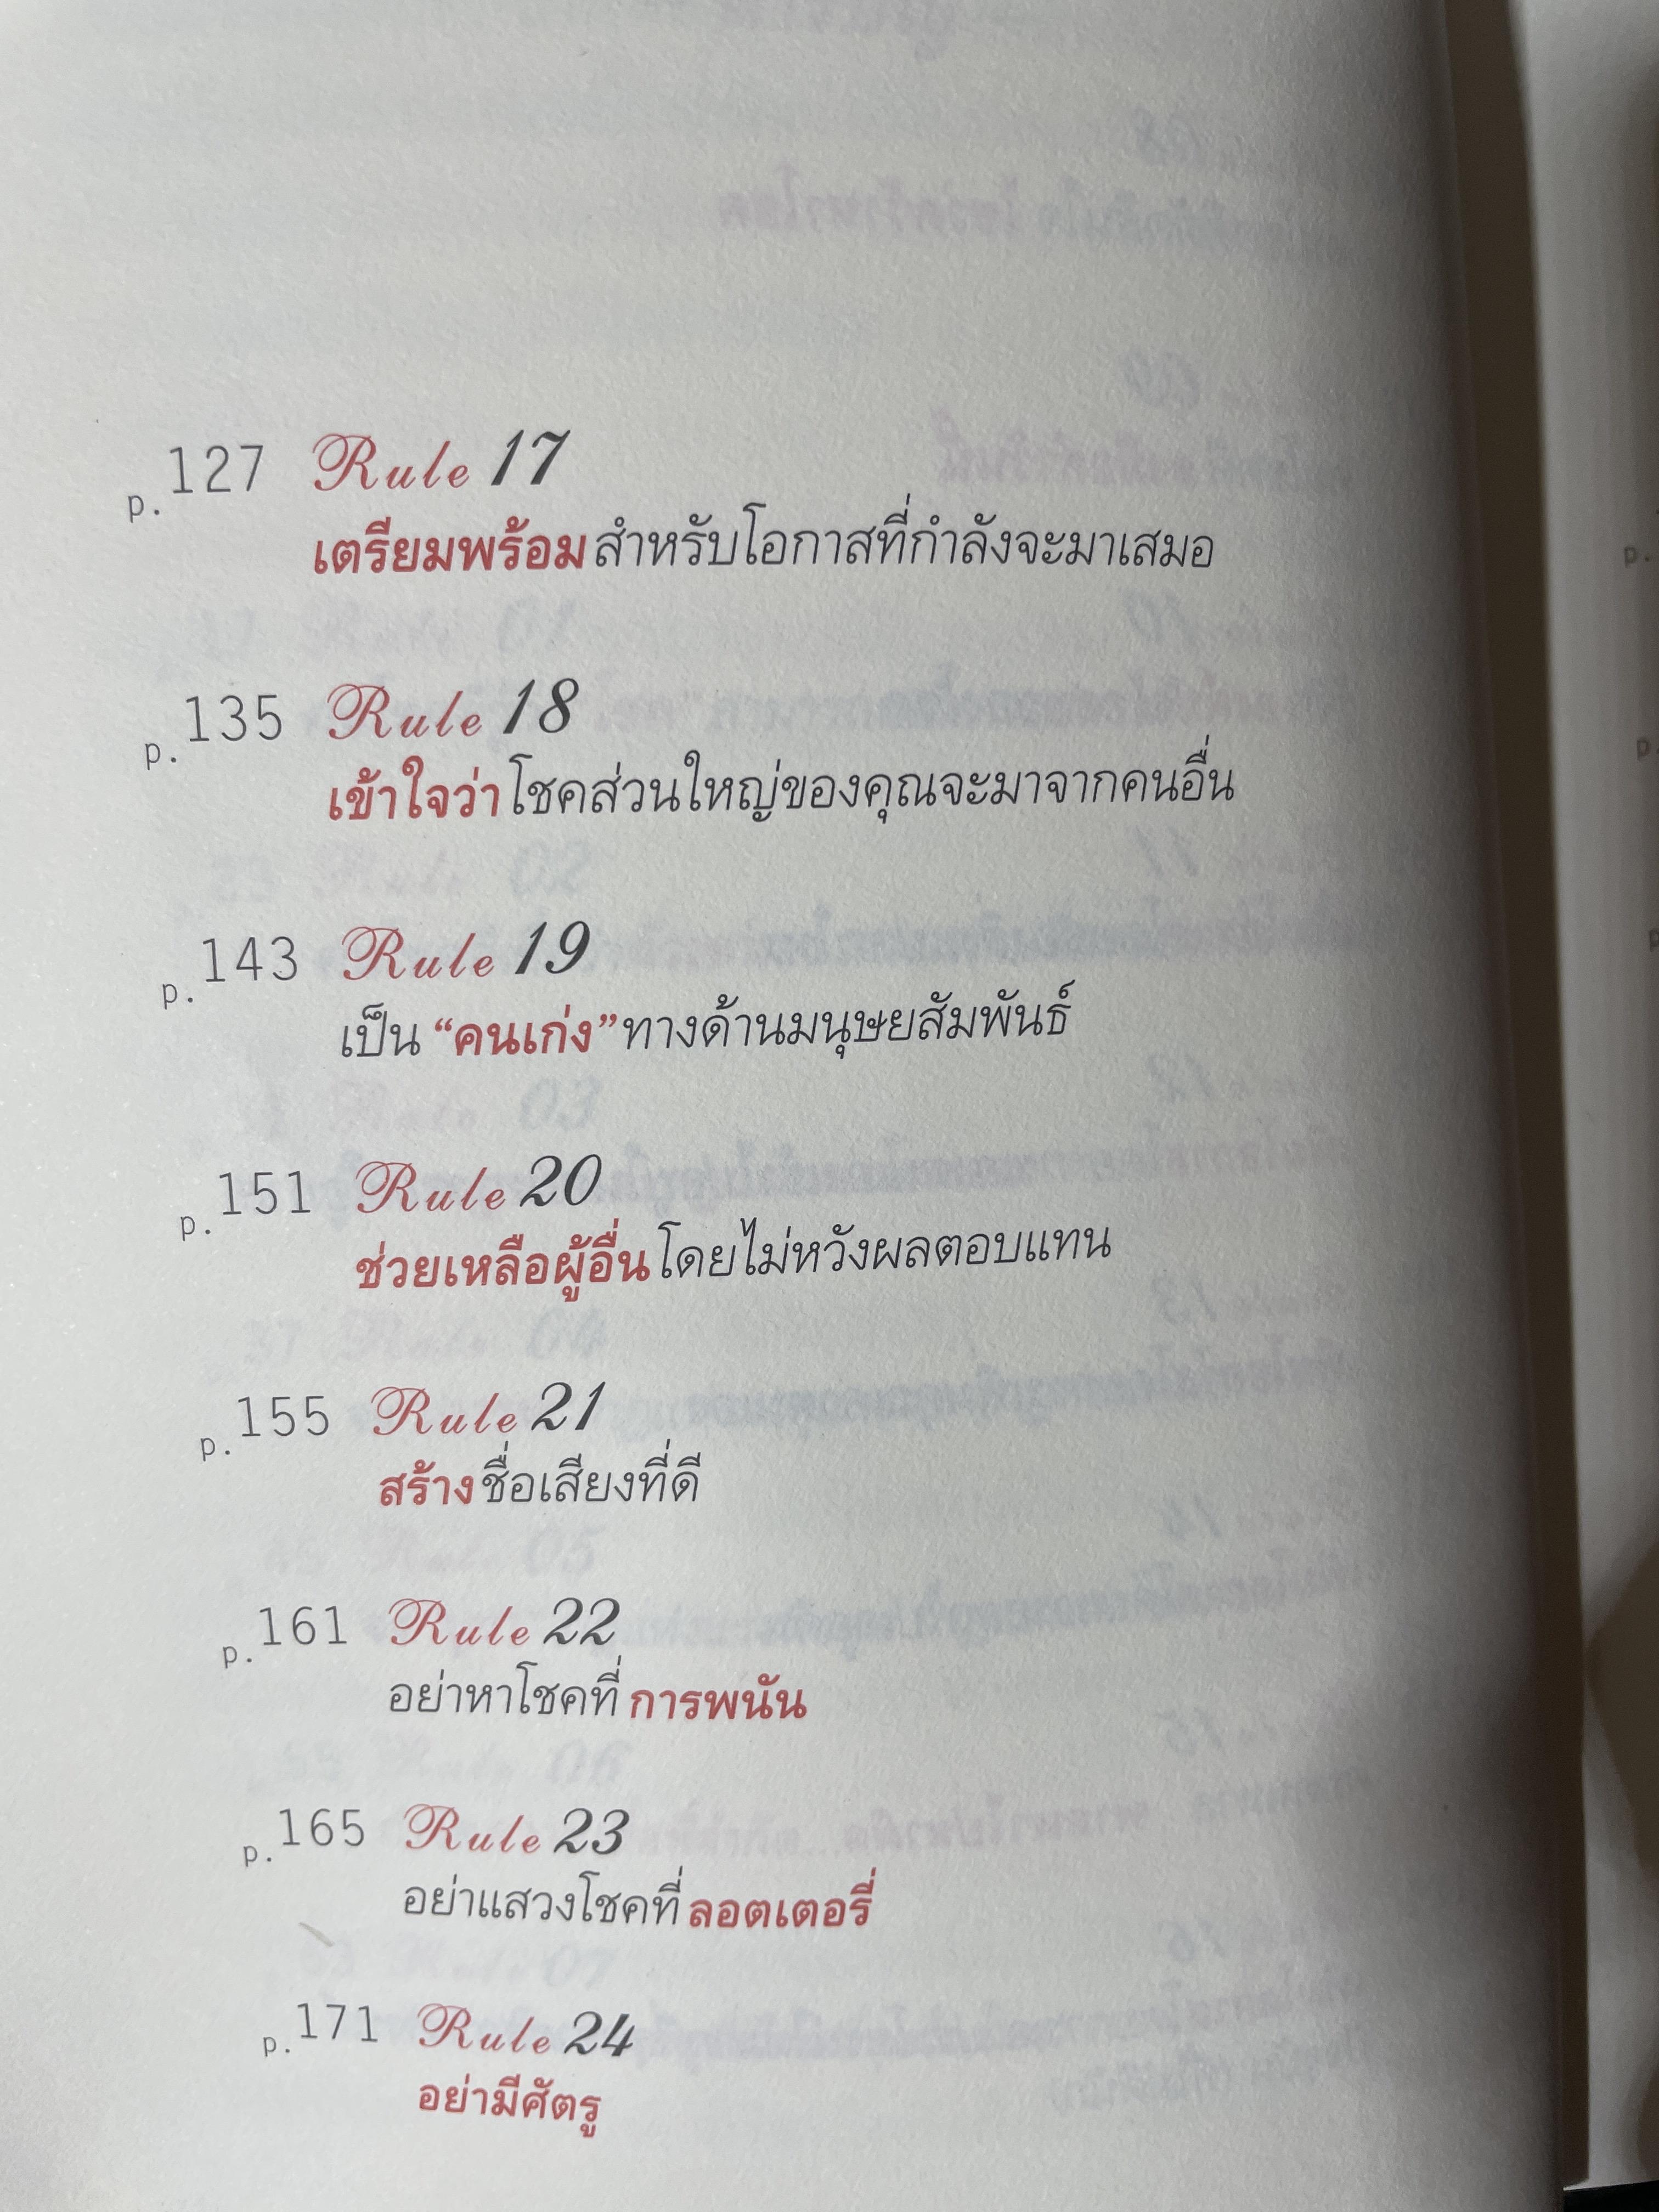 p.127 Rule 17
เตรียมพร้อมสำหรับโอกาสที่กำลังจะมาเสมอ
p.135 Rule 18
เข้าใจว่าโชคส่วนใหญ่ของคุณจะมาจากคนอื่น
p.143 Rule 19
เป็น “คนเก่ง” ทางด้านมนุษยสัมพันธ์
p.151 Rule 20
ช่วยเหลือผู้อื่นโดยไม่หวังผลตอบแทน
p.155 Rule 21
สร้างชื่อเสียงที่ดี
p.161 Rule 22
อย่าหาโชคที่การพนัน
p.165 Rule 23
อย่าแสวงโชคที่ลอตเตอรี่
p.171 Rule 24
อย่ามีศัตรู